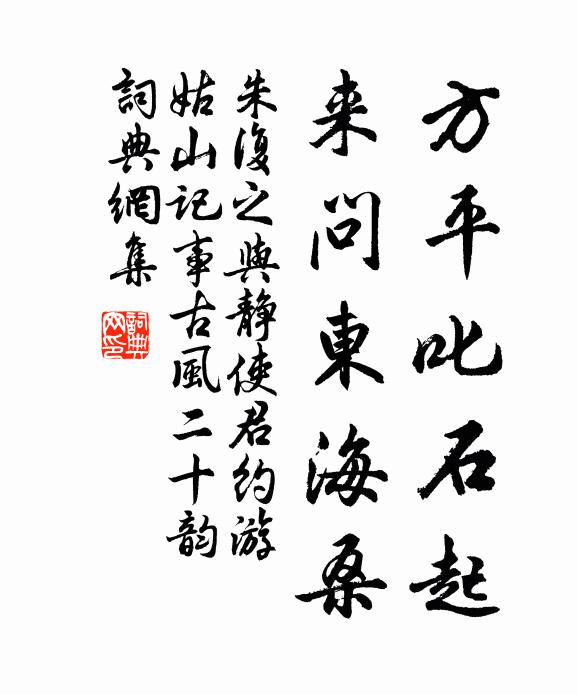 方平叱石起
来問東海桑
朱復之與静使君約游
姑山记事古風二十韵
詞典網集
詞典網印